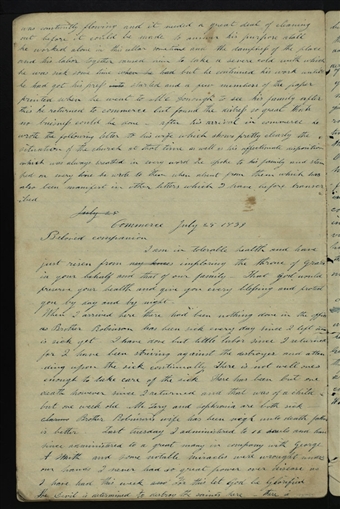 was constantly flowing and it needed a great deal of cleaning
out before it could be made to answer his purpose still
he worked alone in this situation and the dampness of the place
and his labor together caused him to take a severe cold with which
he was sick some time when he had but he continued his work until
he had got his press started and a few numbers of the paper
printed when he went to see his family after
this he returned to commerce but found the
himself could be done after his arrival in commerce he
wrote the following letter to his wife which shows pretty clearly the
situation of the church at that time as well as his affectionate disposition
which was always breathed in every word he spoke to his family and stamp
ed on every line he wrote to them when absent from them which was
also been manifest in other letters which I have before transcri
bed
July 25
Commerce July 25 1839
Beloved companion
I am in tolerable health and have
just risen from my knees imploring the throne of Grace
in your behalf and that of our family That God would
preserve your health and give you every blessing and protect
you by day and by night
When I arrived here there had been nothing done in the office
as Brother Robinson has been sick every day since I left
is sick yet I have done but little labor since I returned
for I have been striving against the destroyer and atten
ding upon the sick continually There is not well ones
enough to take care of the sick There has been but one
death however since I returned and that was of a child
but one week old McLary and Sephronia are both sick
Brother Robinsons wife has been nigh unto death
is better Last tuesday I administered to 16 souls and have
since administered to a great many in company with George
A Smith and some notable miracles were wrought under
our hands I never had so great power over disease as
I have had this week and for this let God be Glorified
the Devil is determined to destroy the saints here